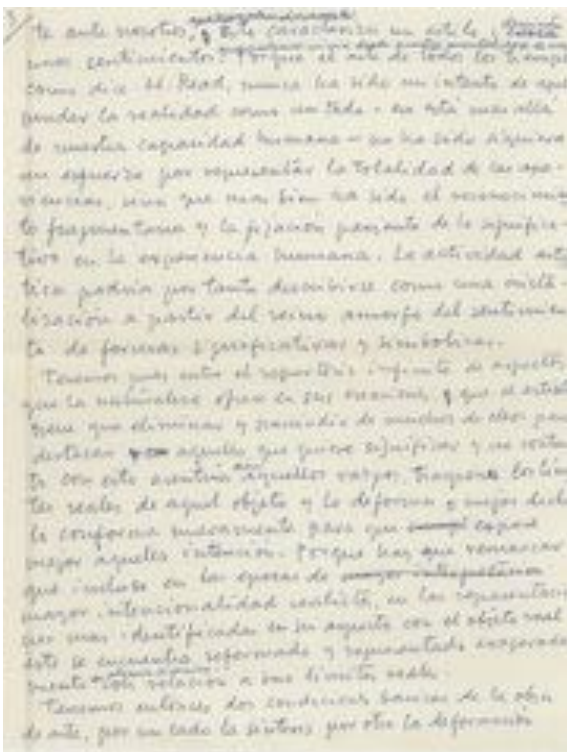 te ante nosotros, y este caracteriza un estilo, 
unos sentimientos. Porque el arte de todos los tiempos
como dice H. Read, nunca ha sido un intento de apre-
hender la realidad como un todo - eso está más allá
de nuestra capacidad humana - no ha sido siquiera
un esfuerzo por representar la totalidad de las apa-
riencias, sino que mas bien ha sido el reconocimien
to fragmentario y la fijación paciente de lo significa-
tivo en la experiencia humana. La actividad artís
tica podría por tanto describirse como una crista-
lización a partir del reino amorfo del sentimien
to de formas significativas y simbolicas.
Tenemos pues entre el repertorio infinito de aspectos
que la naturaleza ofrece en sus creaciones, que el artista
tiene que eliminar y prescindir de muchos de ellos para
destacar aquellos que quiere significar y no conten
to con esto acentua aquellos rasgos, traspasa los lími
tes reales de aquel objeto y lo deforma o mejor dicho
lo conforma nuevamente para que exprese
mejor aquella intención. Porque hay que remarcar
que incluso en las epocas de
mayor intencionalidad realista, en las representacio
nes mas identificadas en su aspecto con el objeto real
éste se encuentra reformado y representado exagerada
mente con relación a sus limites reales.
Tenemos entonces dos condiciones basicas de la obra
de arte, por un lado la sintesis por otro la deformación